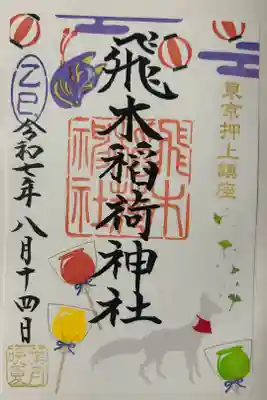 東京押上鎮座
飛木稲荷神社
飛木稲荷神社
乙巳
令和七年 八月十四日